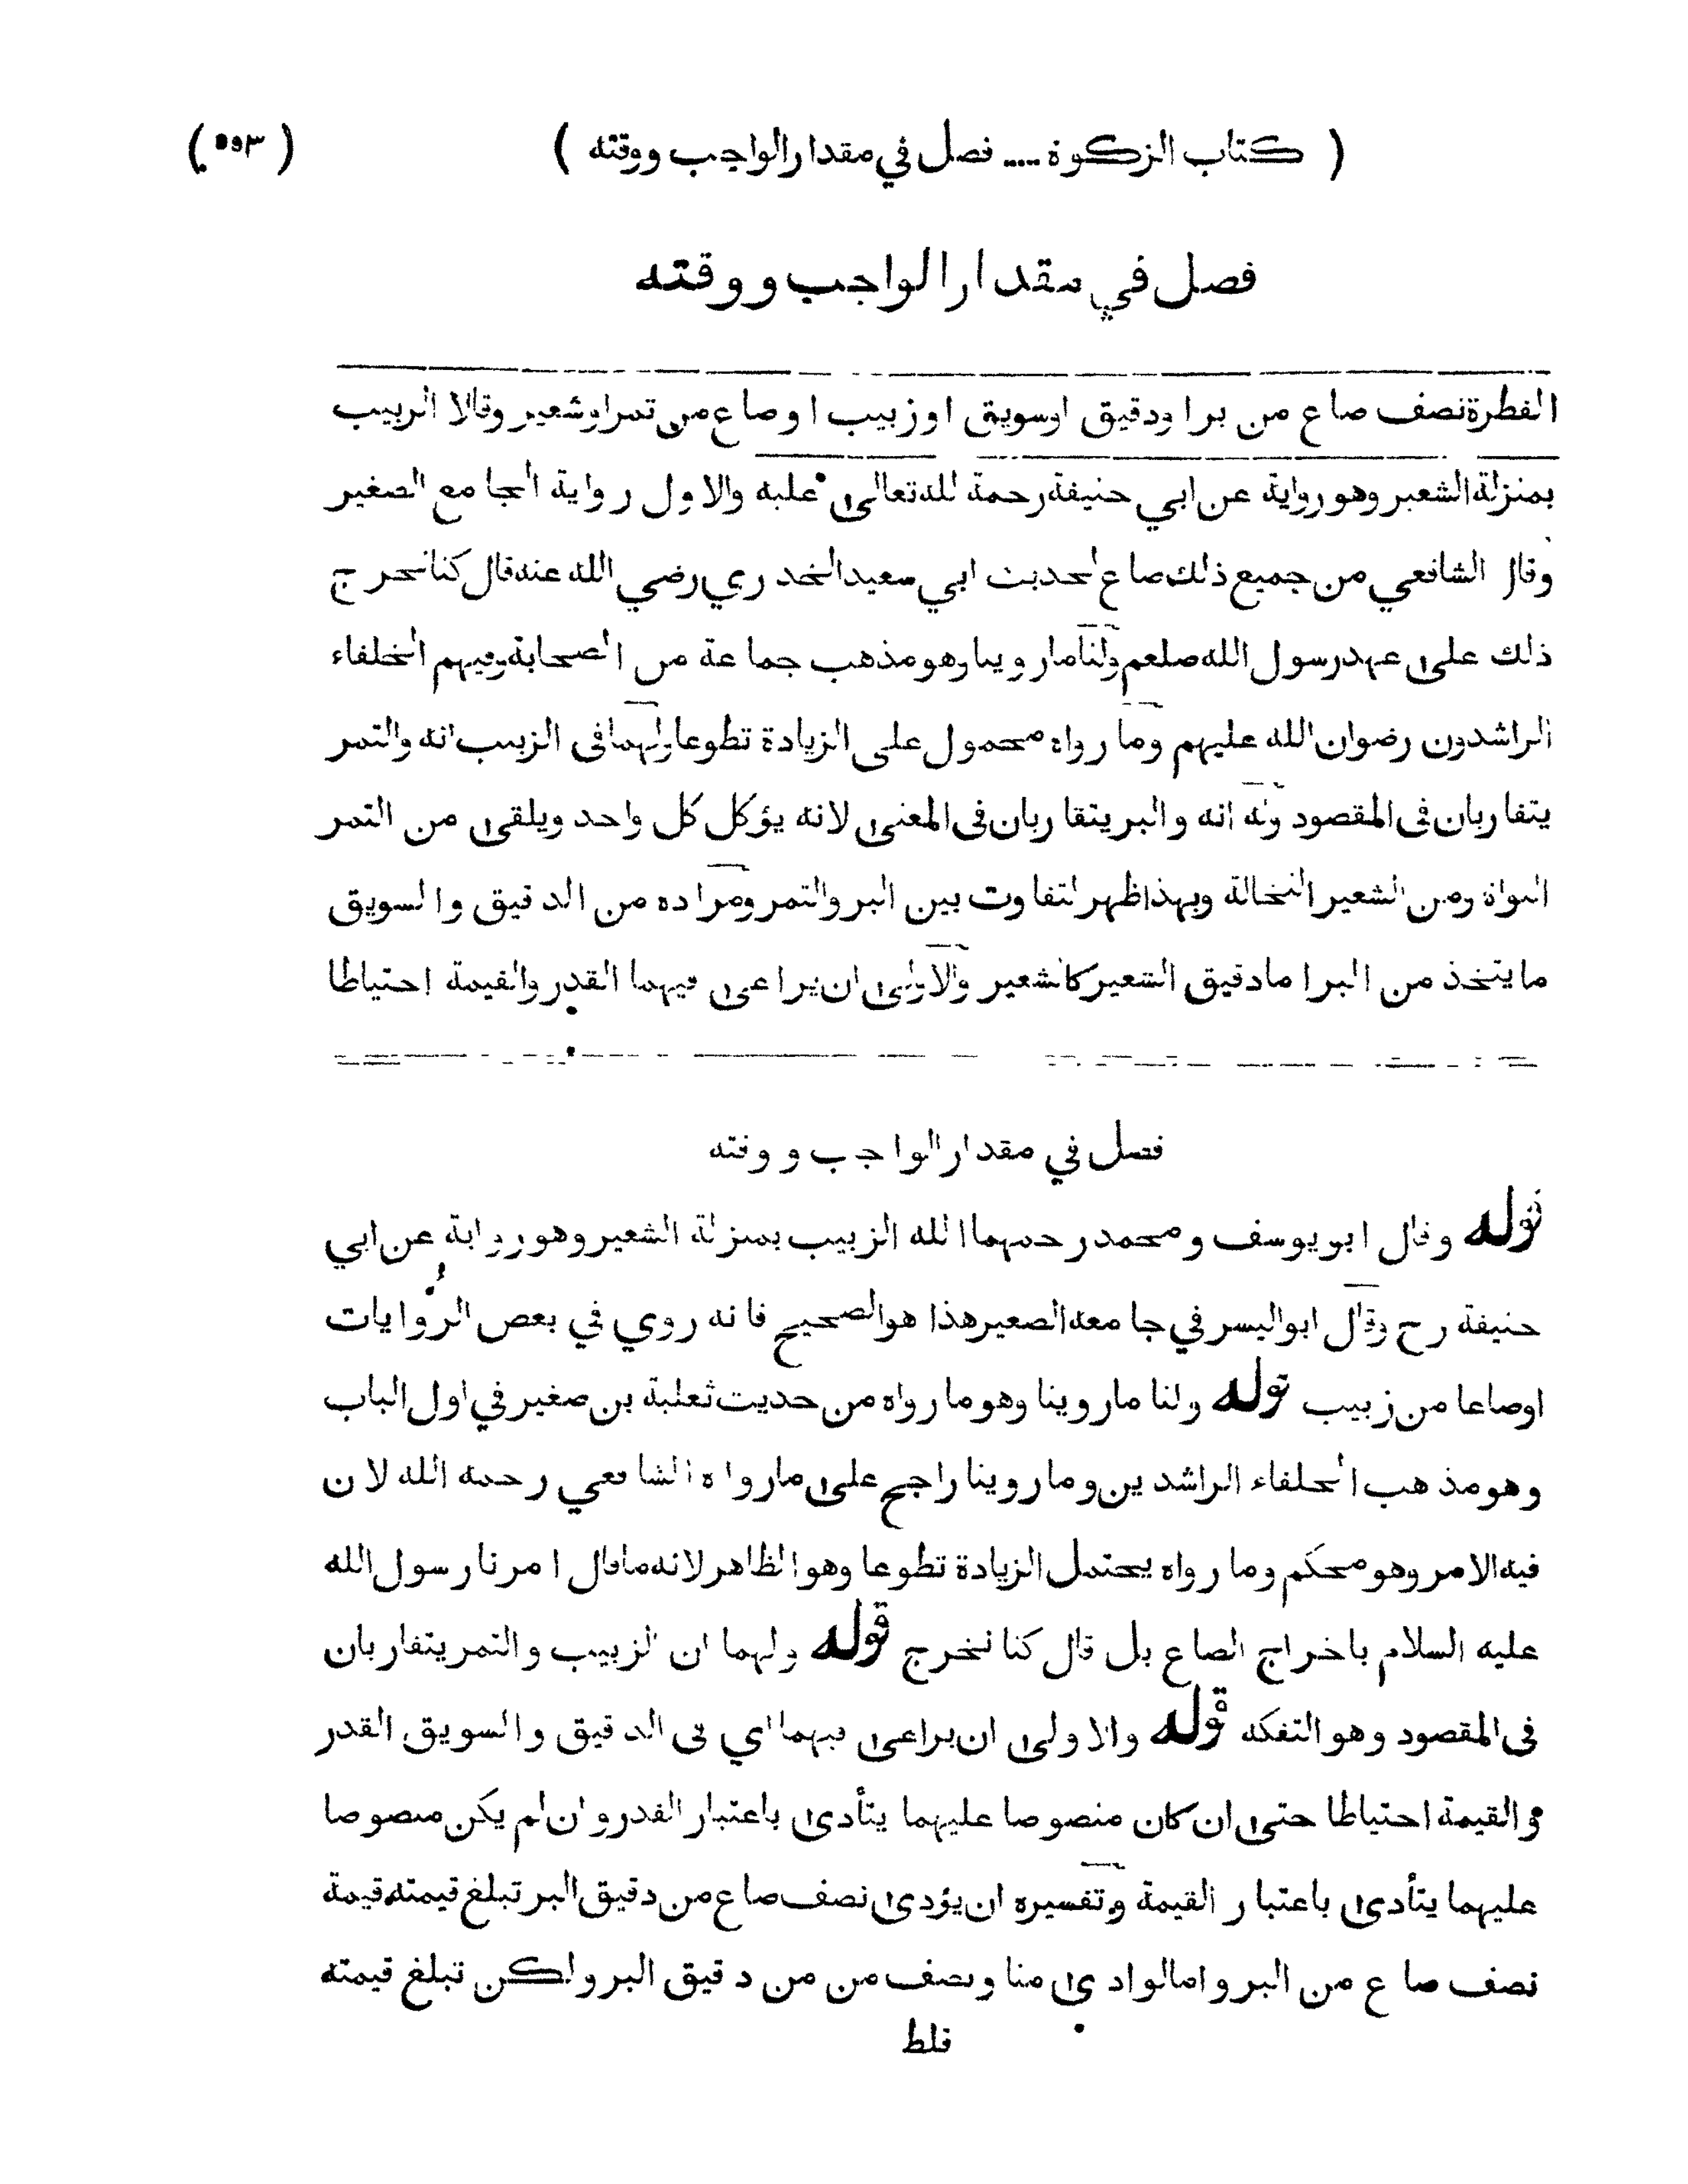 ( كتاب الزكوة .... فصل في مقدار الواجب ووقته ) ( ٥٥٣ )
فصل في مقدار الواجب ووقته
الفطرة نصف صاع من بر او دقيق او سويق او زبيب او صاع من تمر او شعير وقالا الزبيب
بمنزلة الشعير وهو رواية عن ابي حنيفة رحمة لله تعالى عليه والاول رواية الجامع الصغير
وقال الشافعي من جميع ذلك صاع لحديث ابي سعيد الخدري رضي الله عنه قال كنا نخرج
ذلك على عهد رسول الله صلعم ولنا ما روينا وهو مذهب جماعة من الصحابة وفيهم الخلفاء
الراشدون رضوان الله عليهم وما رواه محمول على الزيادة تطوعا ولهما فى الزبيب انه والتمر
يتقاربان فى المقصود وله انه والبر يتقاربان فى المعنى لانه يؤكل كل واحد ويلقى من التمر
النواة ومن الشعير النخالة وبهذا ظهر لتفاوت بين البر والتمر ومراده من الدقيق والسويق
ما يتخذ من البر اما دقيق الشعير كالشعير والاولى ان يراعى فيهما القدر والقيمة احتياطا
فصل في مقدار الواجب ووقته
قوله وقال ابو يوسف ومحمد رحمهما الله الزبيب بمنزلة الشعير وهو رواية عن ابي
حنيفة رح وقال ابو اليسر في جامعه الصغير هذا هو الصحيح فانه روي في بعض الروايات
او صاعا من زبيب قوله ولنا ما روينا وهو ما رواه من حديث ثعلبة بن صغير في اول الباب
وهو مذهب الخلفاء الراشدين وما روينا راجح على ما رواه الشافعي رحمه الله لان
فيه الامر وهو محكم وما رواه يحتمل الزيادة تطوعا وهو الظاهر لانه ما قال امرنا رسول الله
عليه السلام باخراج الصاع بل قال كنا نخرج قوله ولهما ان الزبيب والتمر يتقاربان
فى المقصود وهو التفكه قوله والاولى ان يراعى فيهما اي فى الدقيق والسويق القدر
والقيمة احتياطا حتى ان كان منصوصا عليهما يتأدى باعتبار القدر وان لم يكن منصوصا
عليهما يتأدى باعتبار القيمة وتفسيره ان يؤدى نصف صاع من دقيق البر تبلغ قيمته قيمة
نصف صاع من البر واما لو ادى منا ونصف من من دقيق البر ولكن تبلغ قيمته